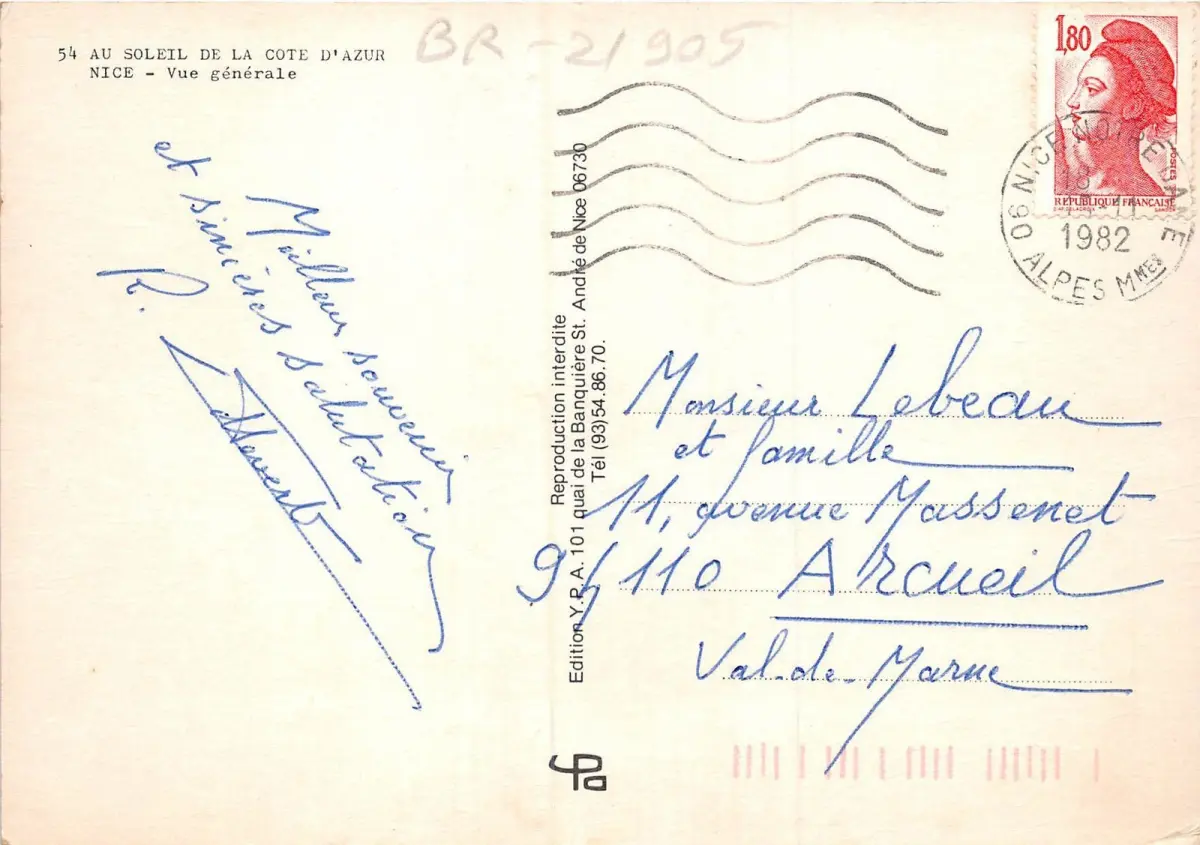 54 AU SOLEIL DE LA COTE D'AZUR
NICE - Vue générale
BR-21905
Meilleur souvenir
et sincères salutations
R.
Reproduction interdite
Edition Y.P.A. 101 quai de la Banquière St. André de Nice 06730
Tél (93)54.86.70.
1,80
POSTES
REPUBLIQUE FRANÇAISE
06 NICE NOTRE DAME
18
1982
ALPES MMES
Monsieur Lebeau
et famille
11, avenue Massenet
94110 Arcueil
Val-de-Marne